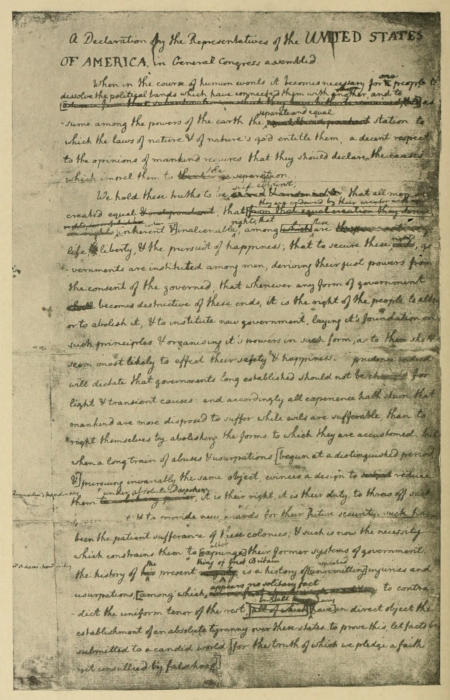 A Declaration by the Representatives of the UNITED STATES
OF AMERICA, in General Congress assembled.
When in the course of human events it becomes necessary for one people to
dissolve the political bands which have connected them with another, and to
-sume among the powers of the earth the separate and equal station to
which the laws of nature & of nature's god entitle them, a decent respect
to the opinions of mankind requires that they should declare the causes
which impel them to the separation.
We hold these truths to be self-evident, that all men are
created equal that they are endowed by their creator with
inherent & inalienable among which are
life liberty, & the pursuit of happiness; that to secure these go
vernments are instituted among men, deriving their just powers from
the consent of the governed, that whenever any form of government
becomes destructive of these ends, it is the right of the people to alter
or to abolish it, & to institute new government, laying it's foundation on
such principles & organising it's powers in such form, as to them shall
seem most likely to effect their safety & happiness. prudence indeed
will dictate that governments long established should not be changed for
light & transient causes: and accordingly all experience hath shewn that
mankind are more disposed to suffer while evils are sufferable than to
right themselves by abolishing the forms to which they are accustomed. but
when a long train of abuses & usurpations [begun at a distinguished period
&] pursuing invariably the same object, evinces a design to reduce
them under absolute Despotism, it is their right, it is their duty, to throw off such
& to provide new guards for their future security. such has
been the patient sufferance of these colonies; & such is now the necessity
which constrains them to [expunge] their former systems of government.
the history of the present King of Great Britain is a history of [unremitting] injuries and
usurpations [among which, appears no solitary fact to contra-
-dict the uniform tenor of the rest [all of which] have in direct object the
establishment of an absolute tyranny over these states. to prove this, let facts be
submitted to a candid world [for the truth of which we pledge a faith
yet unsullied by falsehood]